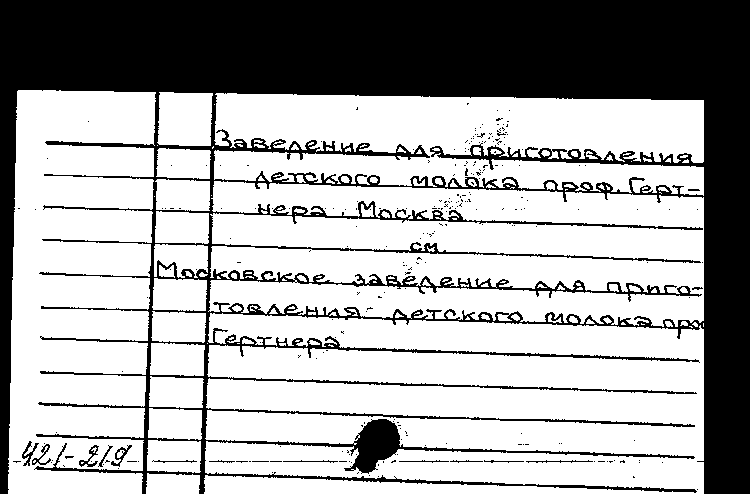 Заведение для приготовления
детского молока проф. Герт-
нера. Москва
см.
Московское заведение для приго-
товления детского молока проф
Гертнера
421-219